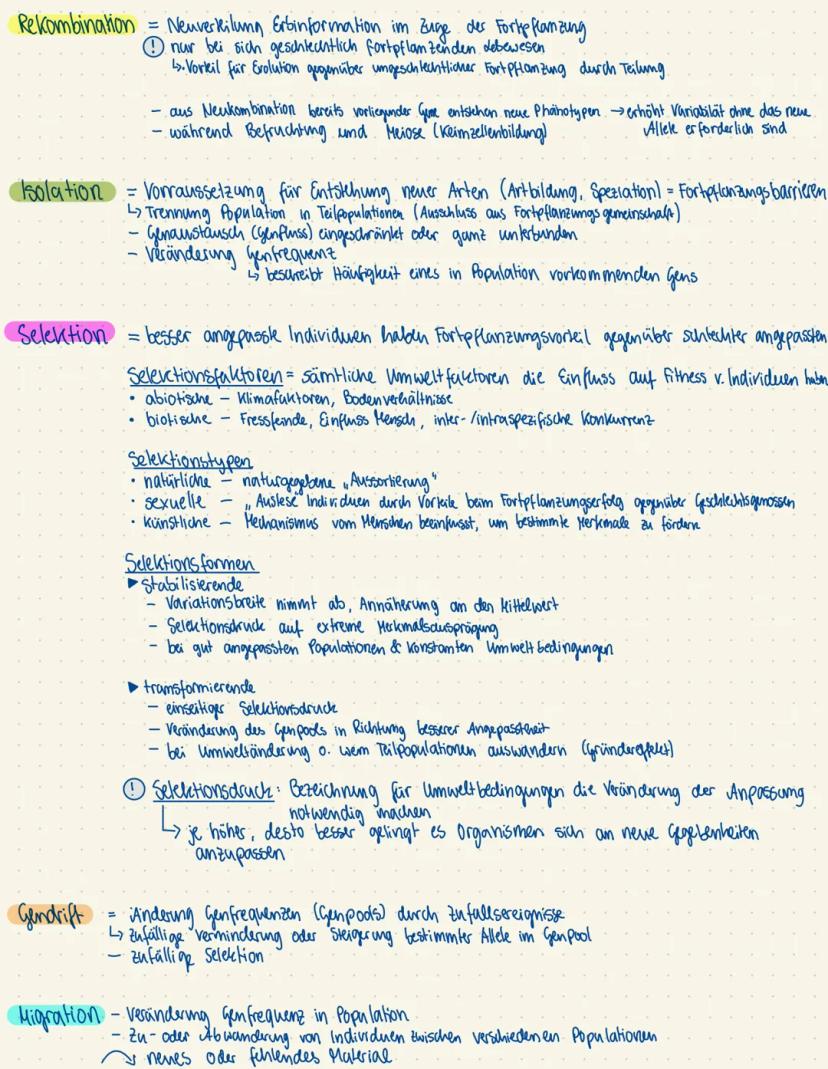 Rekombination = Neuverteilung Erbinformation im Zuge der Fortpflanzung
! nur bei sich geschlechtlich fortpflanzenden Lebewesen
↳ Vorteil für Evolution gegenüber ungeschlechtlicher Fortpflanzung durch Teilung
- aus Neukombination bereits vorliegender Gene entstehen neue Phänotypen → erhöht Variabilität ohne das neue
- während Befruchtung und Meiose (Keimzellenbildung) Allele erforderlich sind
Isolation = Vorraussetzung für Entstehung neuer Arten (Artbildung, Speziation) = Fortpflanzungsbarrieren
↳ Trennung Population in Teilpopulationen (Ausschluss aus Fortpflanzungsgemeinschaft)
- Genaustausch (Genfluss) eingeschränkt oder ganz unterbunden
- Veränderung Genfrequenz
↳ beschreibt Häufigkeit eines in Population vorkommenden Gens
Selektion = besser angepasste Individuen haben Fortpflanzungsvorteil gegenüber schlechter angepassten
Selektionsfaktoren = sämtliche Umweltfaktoren die Einfluss auf Fitness v. Individuen haben
• abiotische - Klimafaktoren, Bodenverhältnisse
• biotische - Fressfeinde, Einfluss Mensch, inter-/intraspezifische Konkurrenz
Selektionstypen
• natürliche - naturgegebene „Aussortierung"
• sexuelle - „Auslese" Individuen durch Vorteile beim Fortpflanzungserfolg gegenüber Geschlechtsgenossen
• künstliche - Mechanismus vom Menschen beeinfusst, um bestimmte Merkmale zu fördern
Selektionsformen
▶ Stabilisierende
- Variationsbreite nimmt ab, Annäherung an den Mittelwert
- Selektionsdruck auf extreme Merkmalsausprägung
- bei gut angepassten Populationen & konstanten Umweltbedingungen
▶ transformierende
- einseitiger Selektionsdruck
- Veränderung des Genpools in Richtung besserer Angepasstheit
- bei Umweltänderung o. wenn Teilpopulationen auswandern (Gründereffekt)
! Selektionsdruck: Bezeichnung für Umweltbedingungen die Veränderung der Anpassung
notwendig machen
↳ je höher, desto besser gelingt es Organismen sich an neue Gegebenheiten
anzupassen
Gendrift = Änderung Genfrequenzen (Genpools) durch Zufallsereignisse
↳ zufällige Verminderung oder Steigerung bestimmter Allele im Genpool
- zufällige Selektion
Migration - Veränderung Genfrequenz in Population
- Zu- oder Abwanderung von Individuen zwischen verschiedenen Populationen
↷ neues oder fehlendes Material